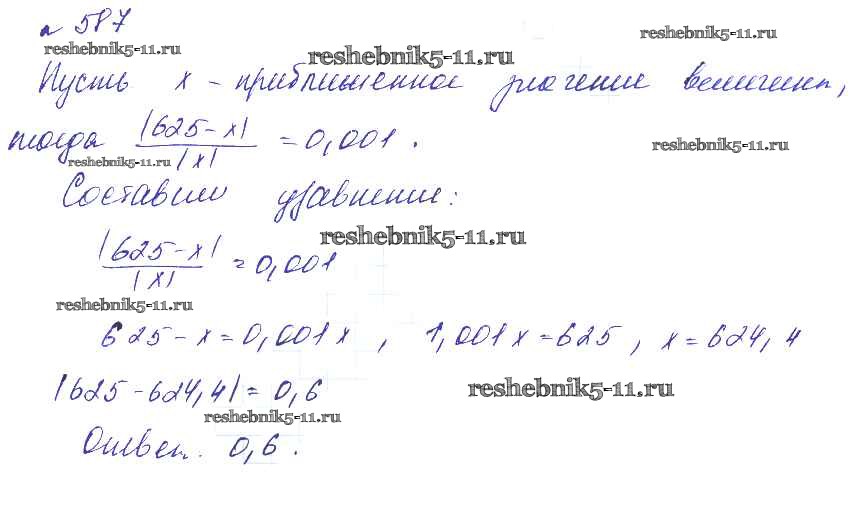 № 587
reshebnik5-11.ru
reshebnik5-11.ru
reshebnik5-11.ru
Пусть x - приближенное значение величины,
тогда |625-x| / |x| = 0,001.
reshebnik5-11.ru
reshebnik5-11.ru
Составим уравнение:
reshebnik5-11.ru
|625-x| / |x| = 0,001
reshebnik5-11.ru
625-x=0,001x, 1,001x=625, x=624,4
|625-624,4|=0,6
reshebnik5-11.ru
reshebnik5-11.ru
Ответ. 0,6.